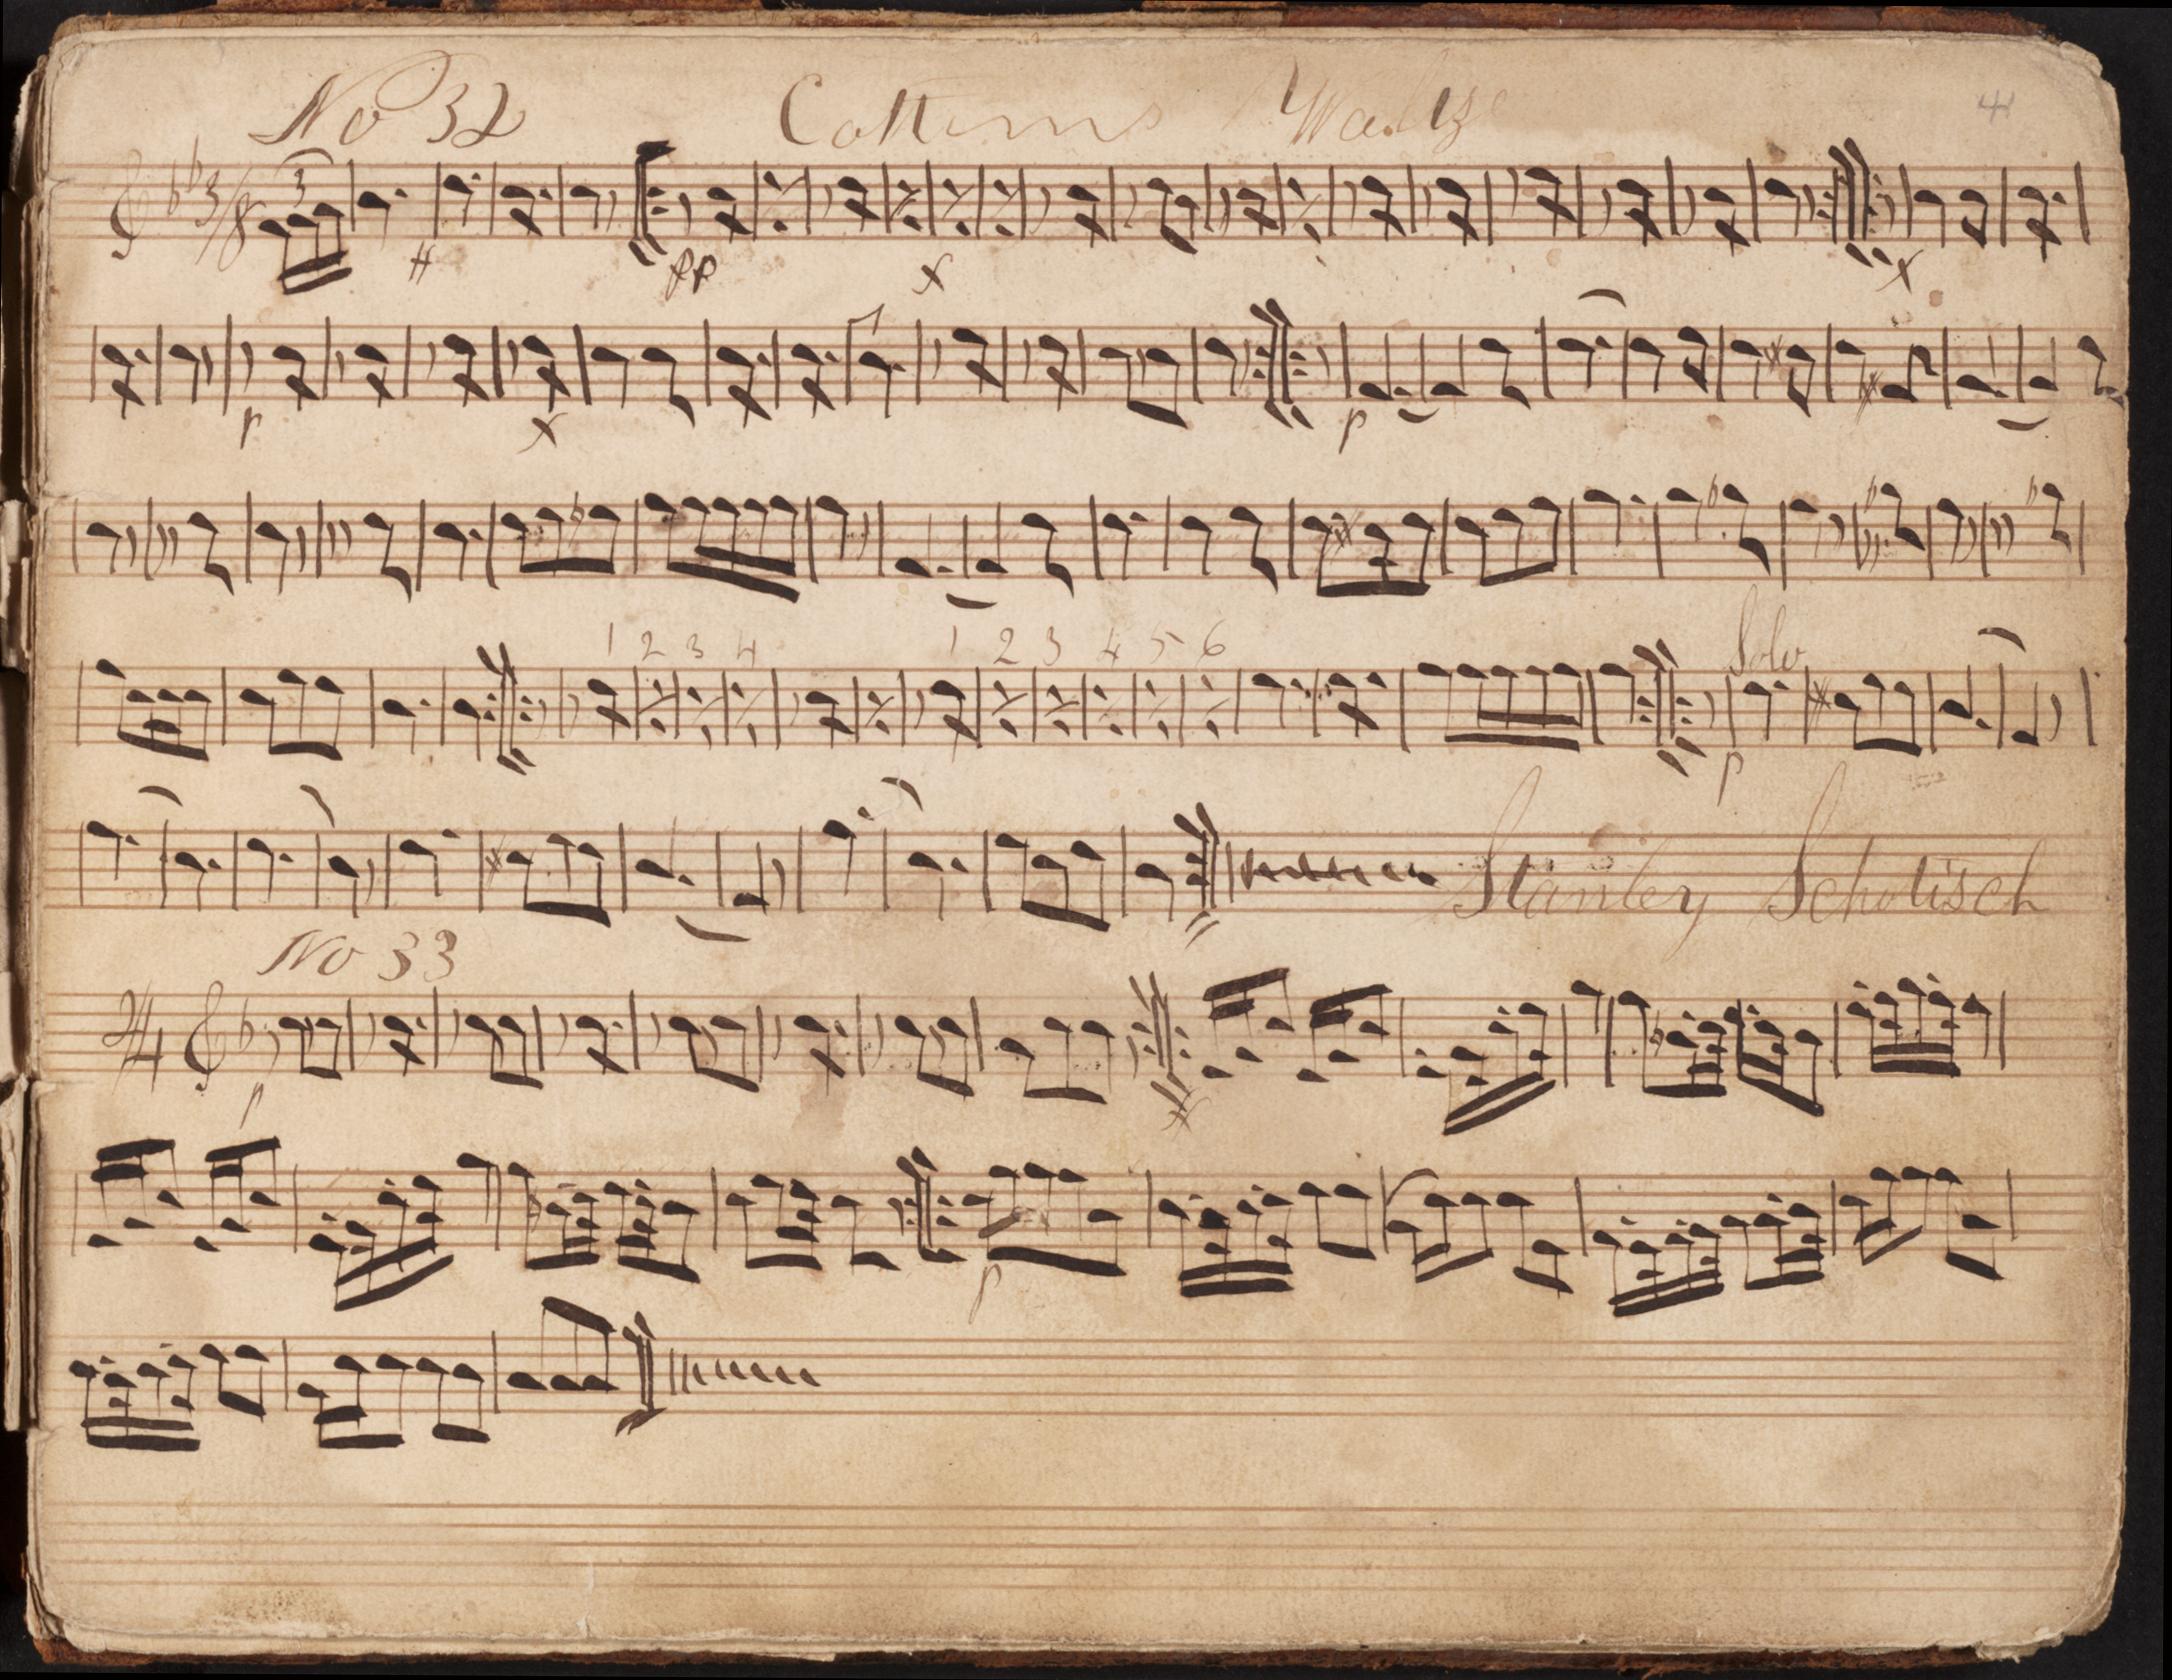 No 32 Cotterns Waltze 41
3/8 3
pp
p p
1 2 3 4 1 2 3 4 5 6 Solo
p
Stanley Schotisch
No 33
2/4
p
p